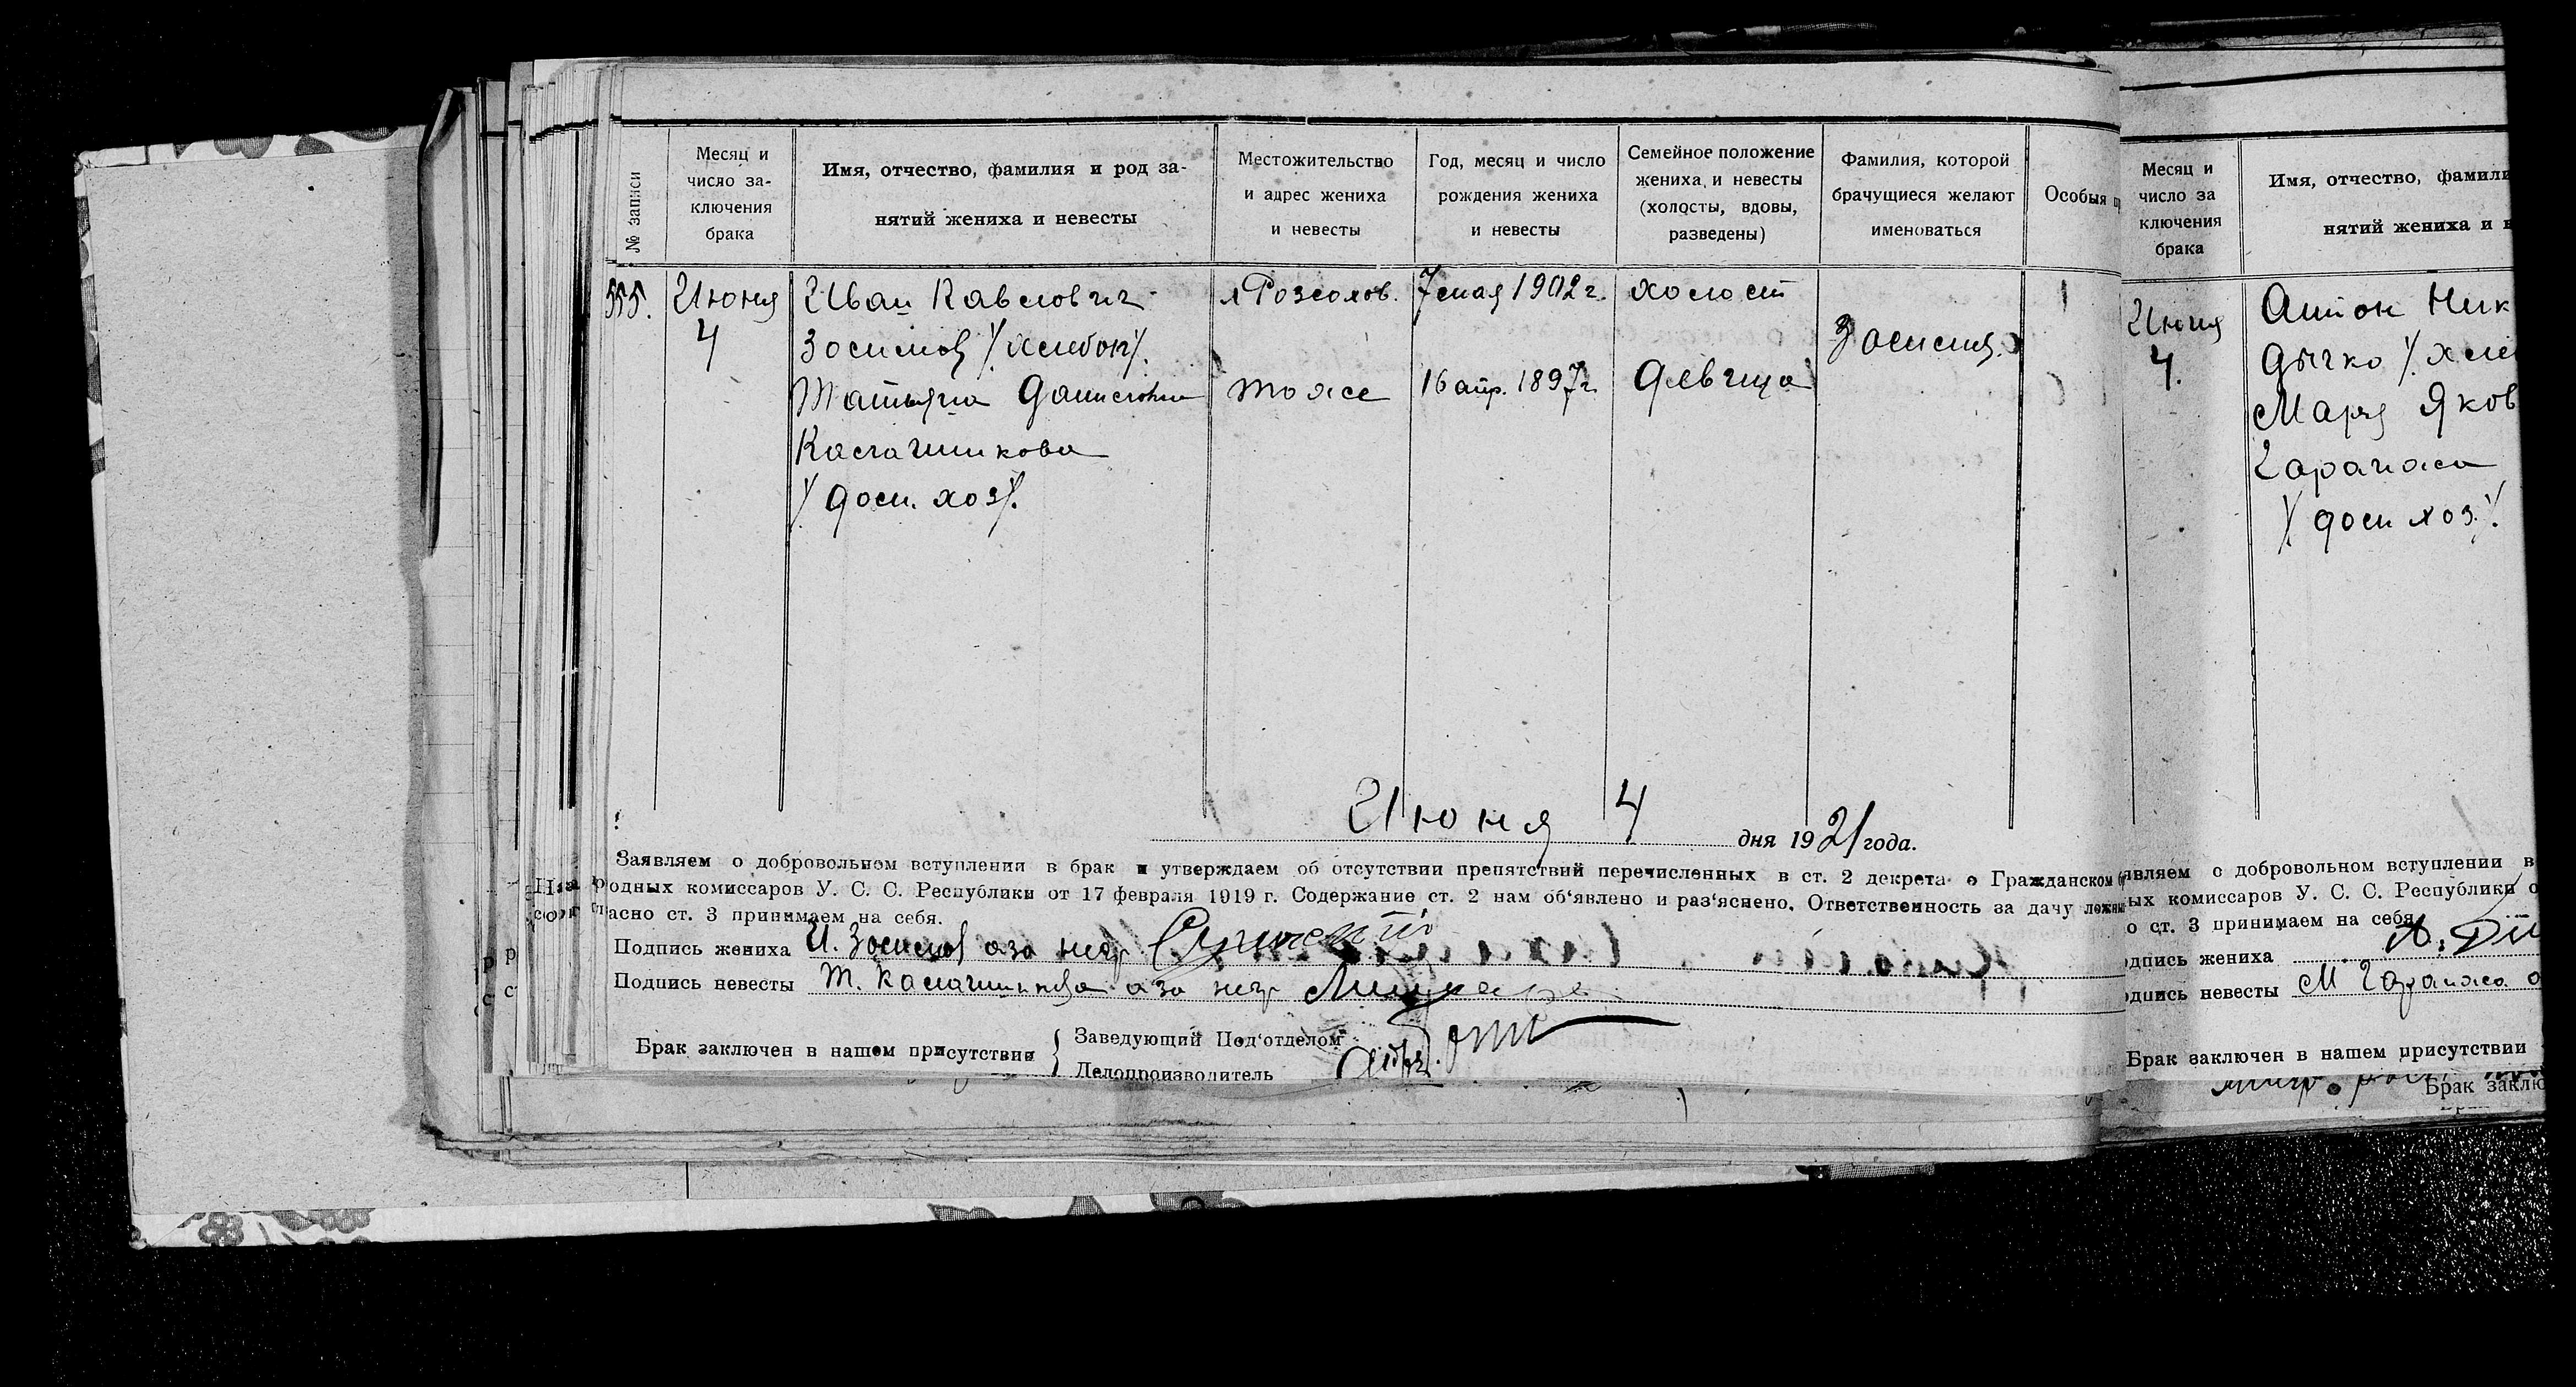 № записи
Месяц и
число за-
ключения
брака
Имя, отчество, фамилия и род за-
нятий жениха и невесты
Местожительство
и адрес жениха
и невесты
Год, месяц и число
рождения жениха
и невесты
Семейное положение
жениха и невесты
(холосты, вдовы,
разведены)
Фамилия, которой
брачущиеся желают
именоваться
Особыя
555.
Июня
4
Иван Павлович
Зосимов /.хлебоп/.
Татьяна Даниловна
Калашникова
/ дом. хоз/.
7 мая 1902 г.
холост
Зосимов
тоже
16 апр. 1897 г.
девица
Июня 4 дня 1921 года.
Заявляем о добровольном вступлении в брак и утверждаем об отсутствии препятствий перечисленных в ст. 2 декрета о Гражданском
родных комиссаров У. С. С. Республики от 17 февраля 1919 г. Содержание ст. 2 нам об'явлено и раз'яснено. Ответственность за дачу
ласно ст. 3 принимаем на себя.
Подпись жениха И. Зосимов а за негр
Подпись невесты Т. Калашникова а за негр
Брак заключен в нашем присутствии
Заведующий Под'отделом
Делопроизводитель
Месяц и
число за
ключения
брака
Имя, отчество, фамили
нятий жениха и
Июня
4.
Антон Ник
Дычко /. хле
Мария Яков
Гаранжа
/ дом хоз./.
являем о добровольном вступлении в
ых комиссаров У. С. С. Республики о
о ст. 3 принимаем на себя
одпись жениха А.
одпись невесты М Гаранжа а
Брак заключен в нашем присутствии
Брак заклю